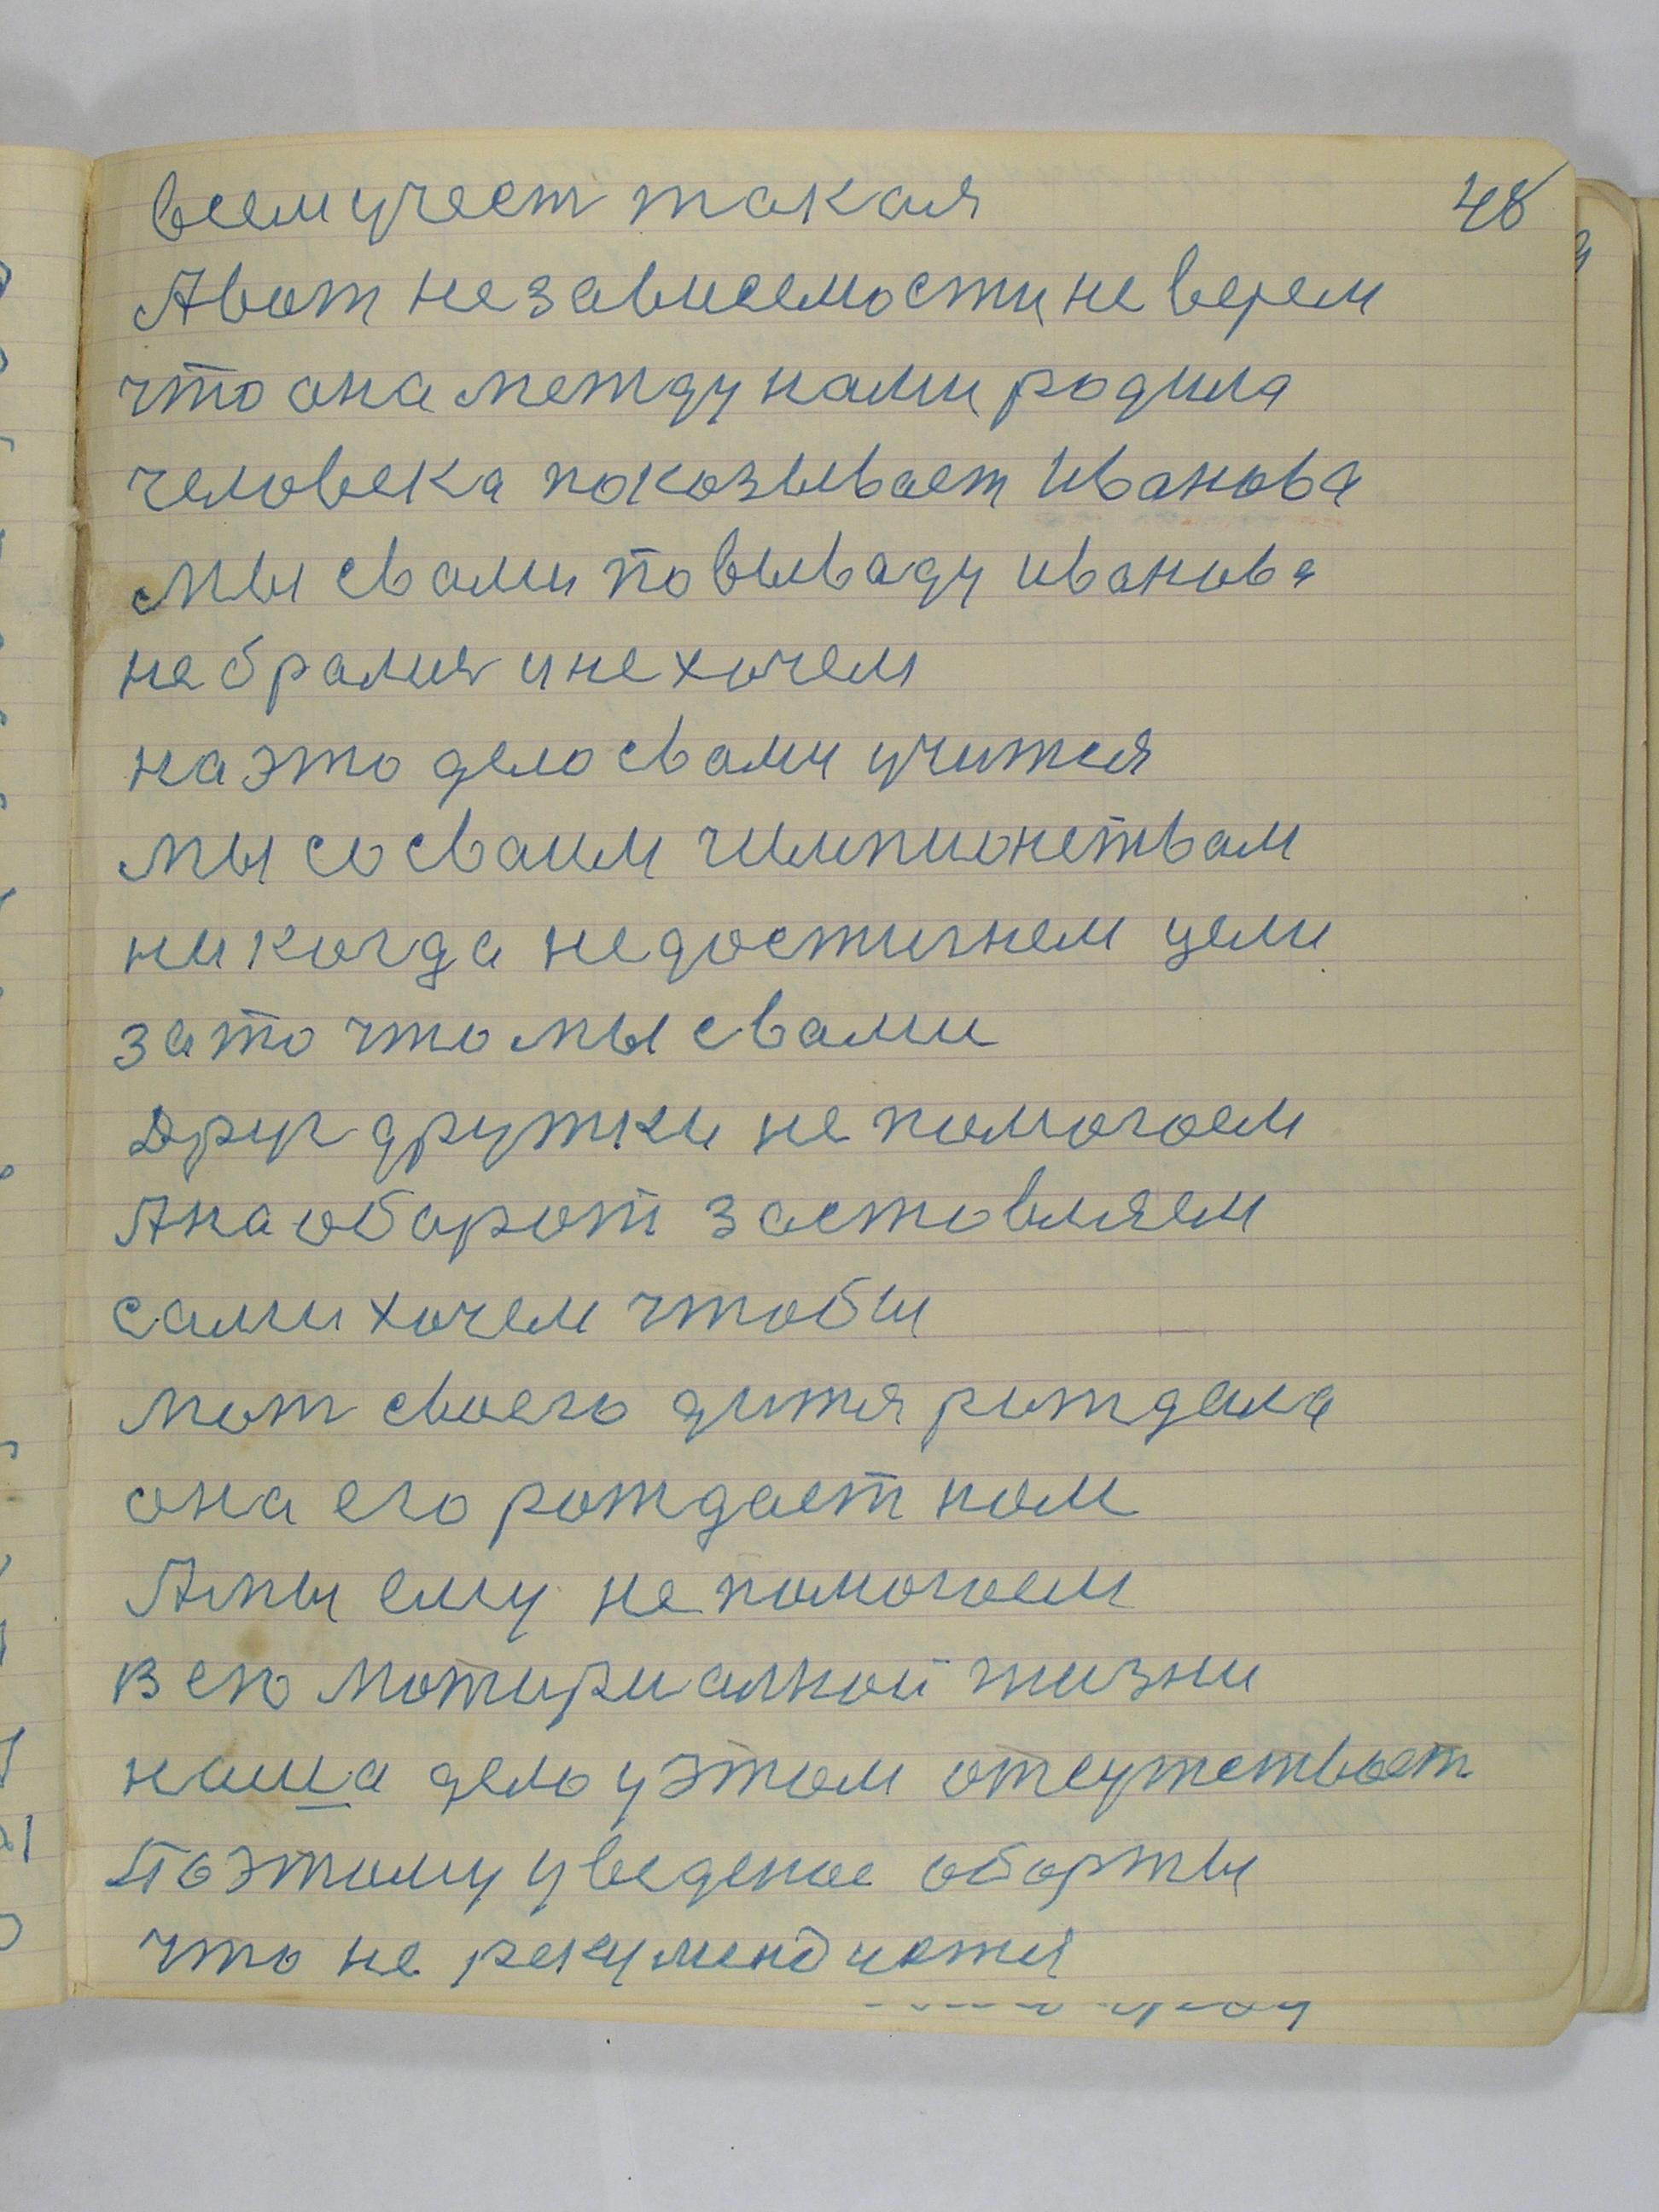 48
всем учест такая
А вот независемости не верем
что она между нами родила
человека показывает Иванова
мы свами по вываду иванова
не брались и не хочем
на это дело свами учится
мы со сваим чимпионствам
ни когда не достигнем цели
за то что мы свами
Друг дружки не помогаем
А на обарот заставляем
сами хочем чтобы
мат своего дитя рождала
она его рождает нам
А мы ему не помогаем
в ею матириалной жизни
наша дело у этом отсутствает
Поэтому уведеное обарты
что не рекумендуется